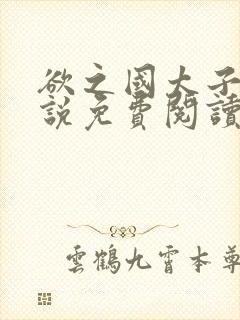 欲之國太子
說免費閱讀
雲鶴九霄本尊